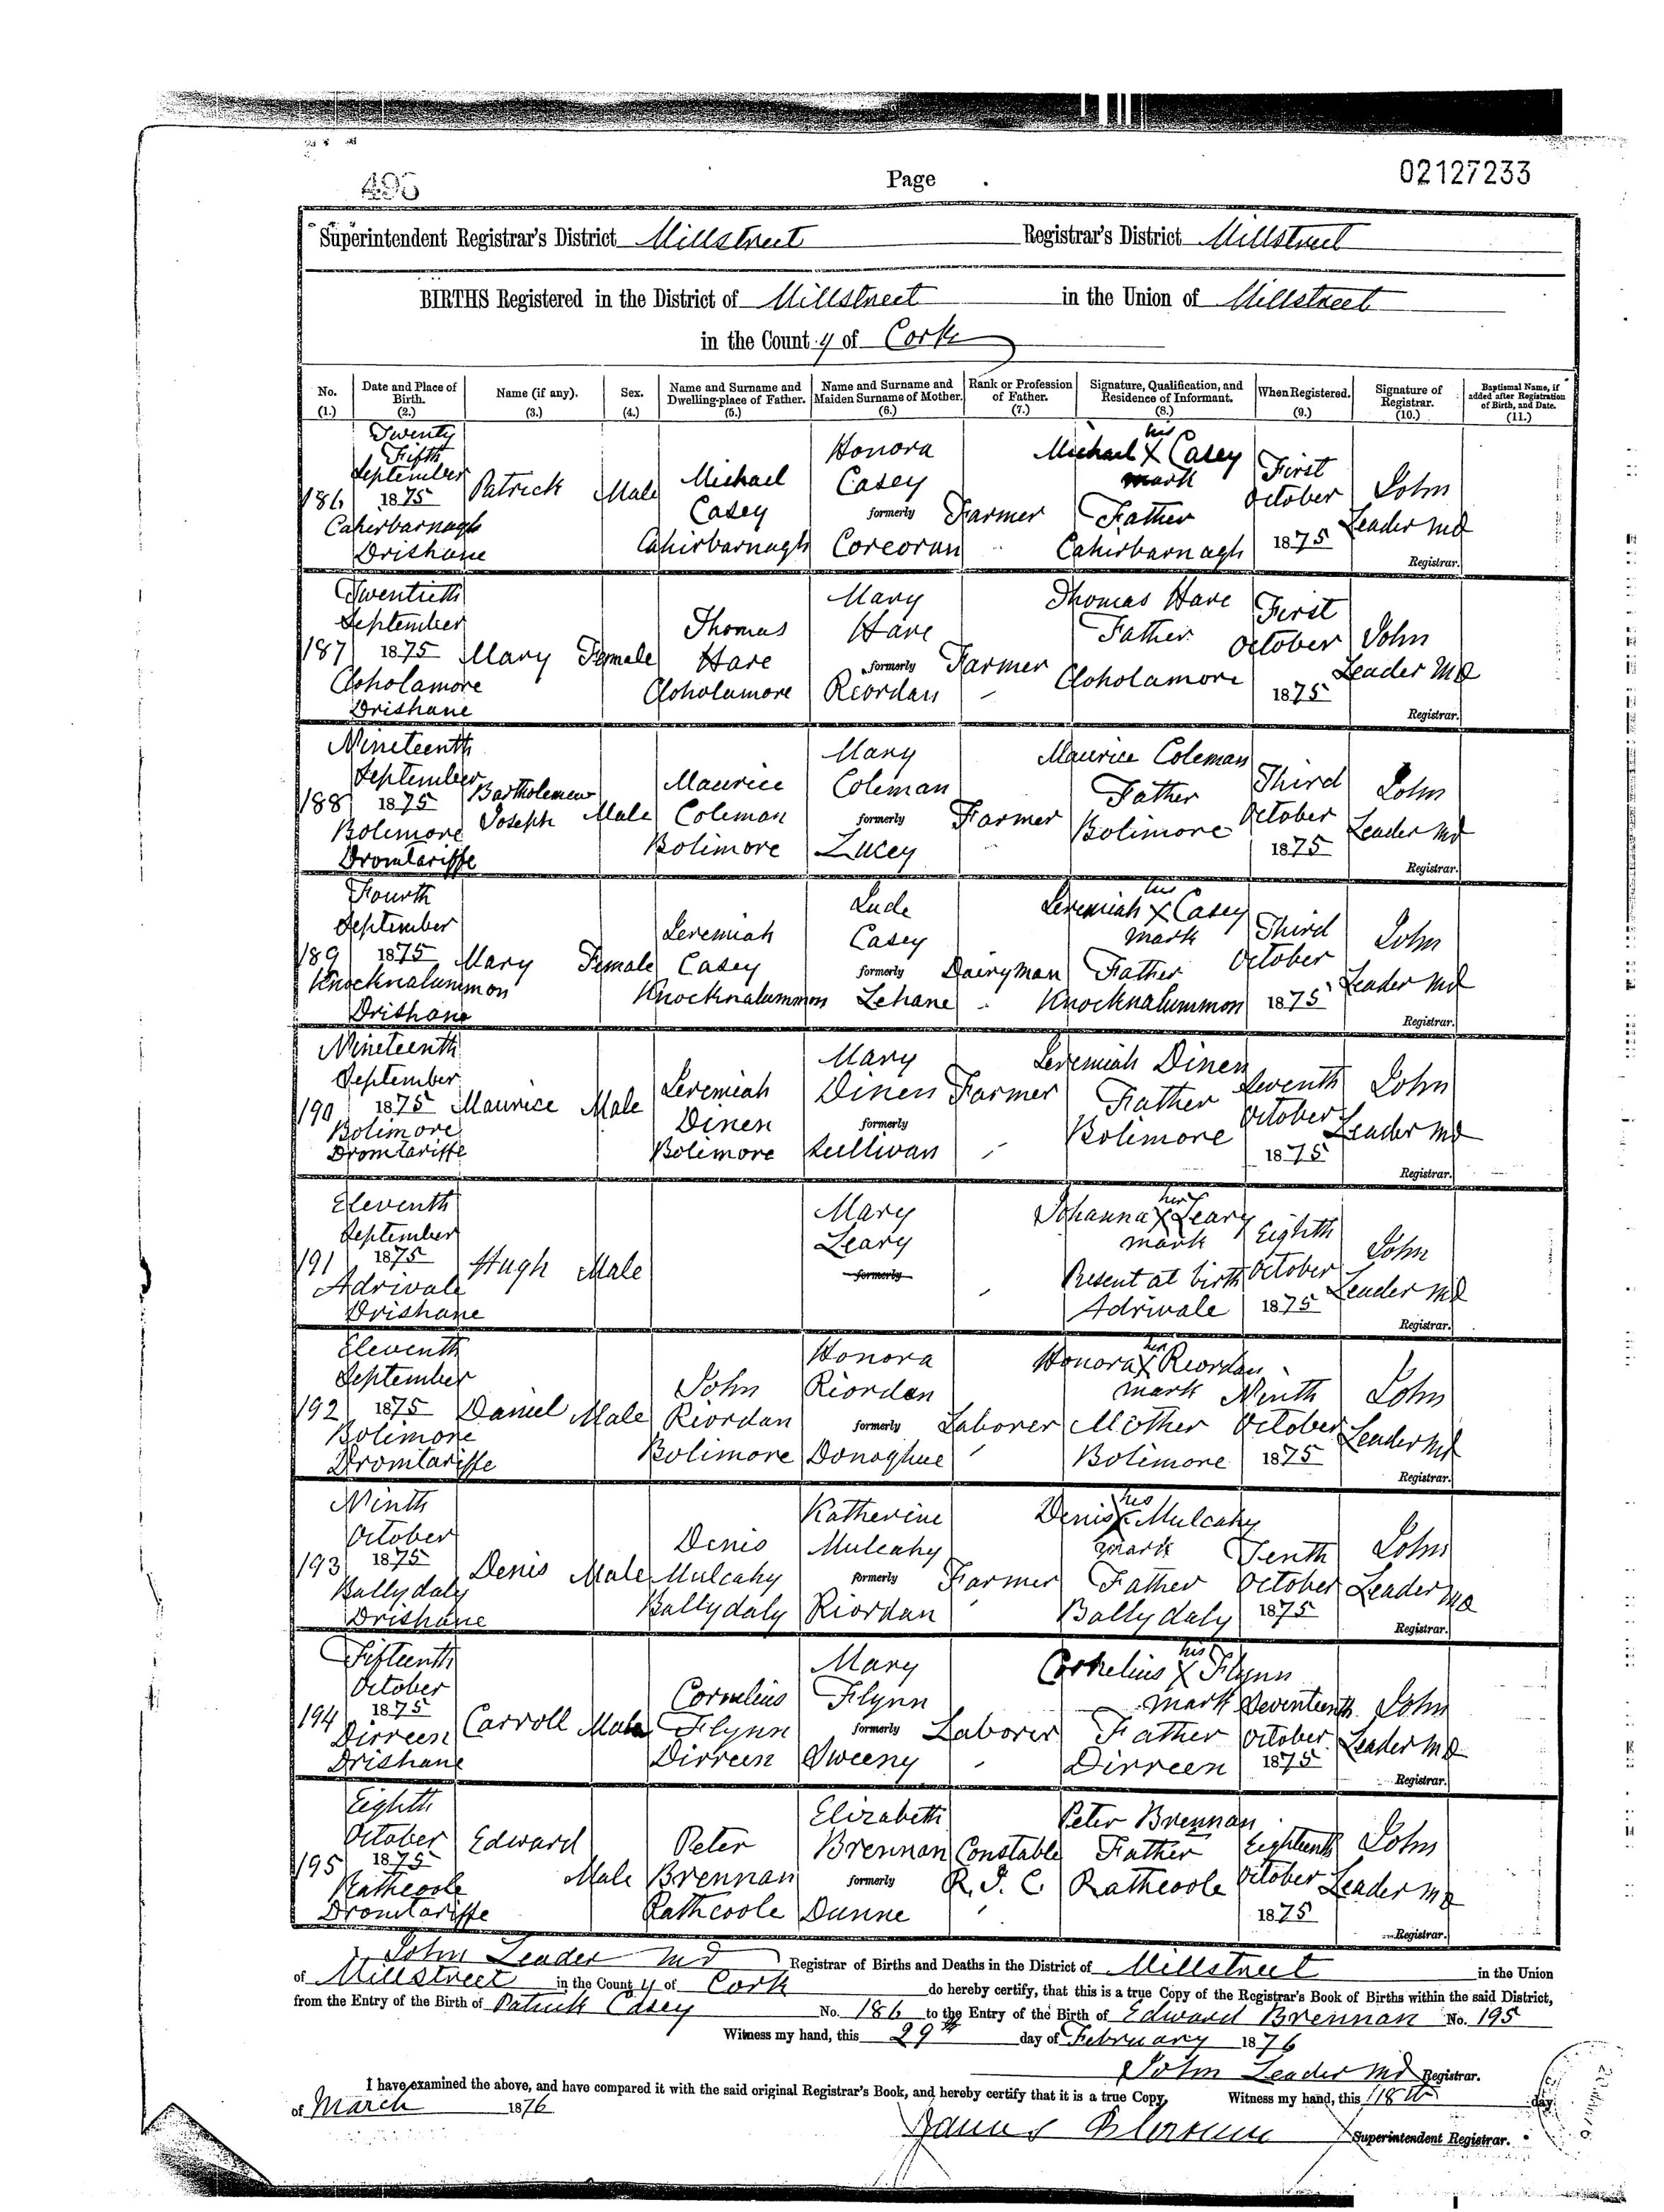 495
Page
02127233
Superintendent Registrar's District Millstreet Registrar's District Millstreet
BIRTHS Registered in the District of Millstreet in the Union of Millstreet
in the County of Cork
No. (1.) Date and Place of Birth. (2.) Name (if any). (3.) Sex. (4.) Name and Surname and Dwelling-place of Father. (5.) Name and Surname and Maiden Surname of Mother. (6.) Rank or Profession of Father. (7.) Signature, Qualification, and Residence of Informant. (8.) When Registered. (9.) Signature of Registrar. (10.) Baptismal Name, if added after Registration of Birth, and Date. (11.)
186 Twenty Fifth September 1875 Cahirbarnagh Drishane Patrick Male Michael Casey Cahirbarnagh Honora Casey formerly Corcoran Farmer Michael X Casey his mark Father Cahirbarnagh First October 1875 John Leader MD Registrar.
187 Twentieth September 1875 Cloholamore Drishane Mary Female Thomas Hare Cloholamore Mary Hare formerly Riordan Farmer Thomas Hare Father Cloholamore First October 1875 John Leader MD Registrar.
188 Nineteenth September 1875 Bolimore Dromtariffe Bartholemew Joseph Male Maurice Coleman Bolimore Mary Coleman formerly Lucey Farmer Maurice Coleman Father Bolimore Third October 1875 John Leader Md Registrar.
189 Fourth September 1875 Knocknalummon Drishane Mary Female Jeremiah Casey Knocknalummon Jude Casey formerly Lehane Dairyman Jeremiah X Casey his mark Father Knocknalummon Third October 1875 John Leader Md Registrar.
190 Nineteenth September 1875 Bolimore Dromtariffe Maurice Male Jeremiah Dinen Bolimore Mary Dinen formerly Sullivan Farmer Jeremiah Dinen Father Bolimore Seventh October 1875 John Leader Md Registrar.
191 Eleventh September 1875 Adrivale Drishane Hugh Male Mary Leary formerly Johanna X Leary her mark Present at birth Adrivale Eighth October 1875 John Leader Md Registrar.
192 Eleventh September 1875 Bolimore Dromtariffe Daniel Male John Riordan Bolimore Honora Riordan formerly Donoghue Laborer Honora X Riordan her mark Mother Bolimore Ninth October 1875 John Leader Md Registrar.
193 Ninth October 1875 Ballydaly Drishane Denis Male Denis Mulcahy Ballydaly Katherine Mulcahy formerly Riordan Farmer Denis X Mulcahy his mark Father Ballydaly Tenth October 1875 John Leader MD Registrar.
194 Fifteenth October 1875 Dirreen Drishane Carroll Male Cornelius Flynn Dirreen Mary Flynn formerly Sweeny Laborer Cornelius X Flynn his mark Father Dirreen Seventeenth October 1875 John Leader MD Registrar.
195 Eighth October 1875 Rathcoole Dromtariffe Edward Male Peter Brennan Rathcoole Elizabeth Brennan formerly Dunne Constable R.I.C Peter Brennan Father Rathcoole Eighteenth October 1875 John Leader MD Registrar.
John Leader MD Registrar of Births and Deaths in the District of Millstreet in the Union
of Millstreet in the County of Cork do hereby certify, that this is a true Copy of the Registrar's Book of Births within the said District,
from the Entry of the Birth of Patrick Casey No. 186 to the Entry of the Birth of Edward Brennan No. 195
Witness my hand, this 29th day of February 1876
John Leader Md Registrar.
I have examined the above, and have compared it with the said original Registrar's Book, and hereby certify that it is a true Copy, Witness my hand, this 18th day
of March 1876
Superintendent Registrar.